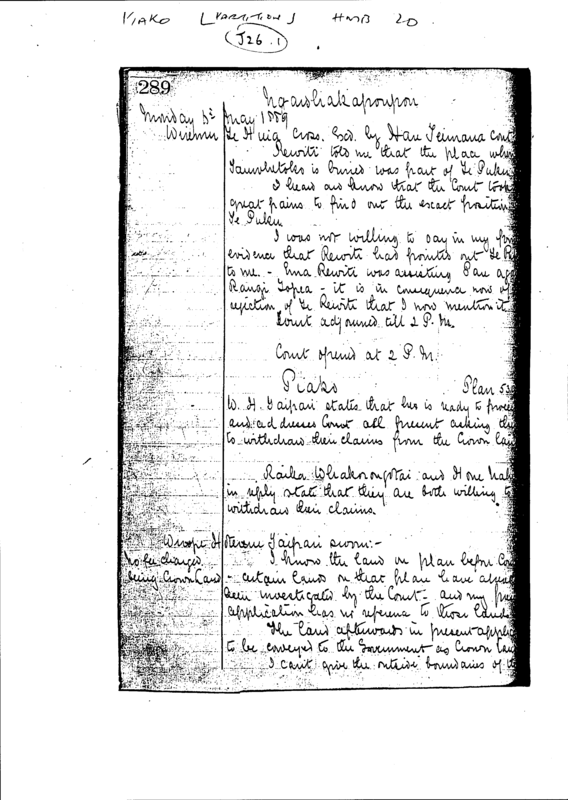 PIAKO [PARTITION] HMB 20
J26.1
289
Ngawhakapoupou
Monday
May 1889
Wiremu Te Huia Cross. Exd. by Hare Teimana cont
Rewiti told me that the place wher
is buried was part of Te Puku
I heard and know that the Court took
great pains to find out the exact position
Te Puku
I was not willing to say in my
evidence that Rewiti had pointed out Te
to me. - Rewiti was assisting
Rangi Topea - it is in consequence now of
rejection of Te Rewiti that I now mention it
Court adjourned till 2 P.M.
Court opened at 2 P.M.
Piako Plan
W. H. Taipari states that he is ready to proce
and addresses Court all present asking the
to withdraw their claims from the Crown lan
Raika Whakarongotai and Hone
in reply state that they are both willing to
withdraw their claims.
Wirope Hoterene Taipari sworn:-
no fee charged I know the land on plan before Cou
being Crown Land - certain lands on that plan have alread
been investigated by the Court - and my pres
application has no reference to those lands
The land afterwards in present applic
to be conveyed to the Government as Crown lan
I can't give the outside boundaries of th